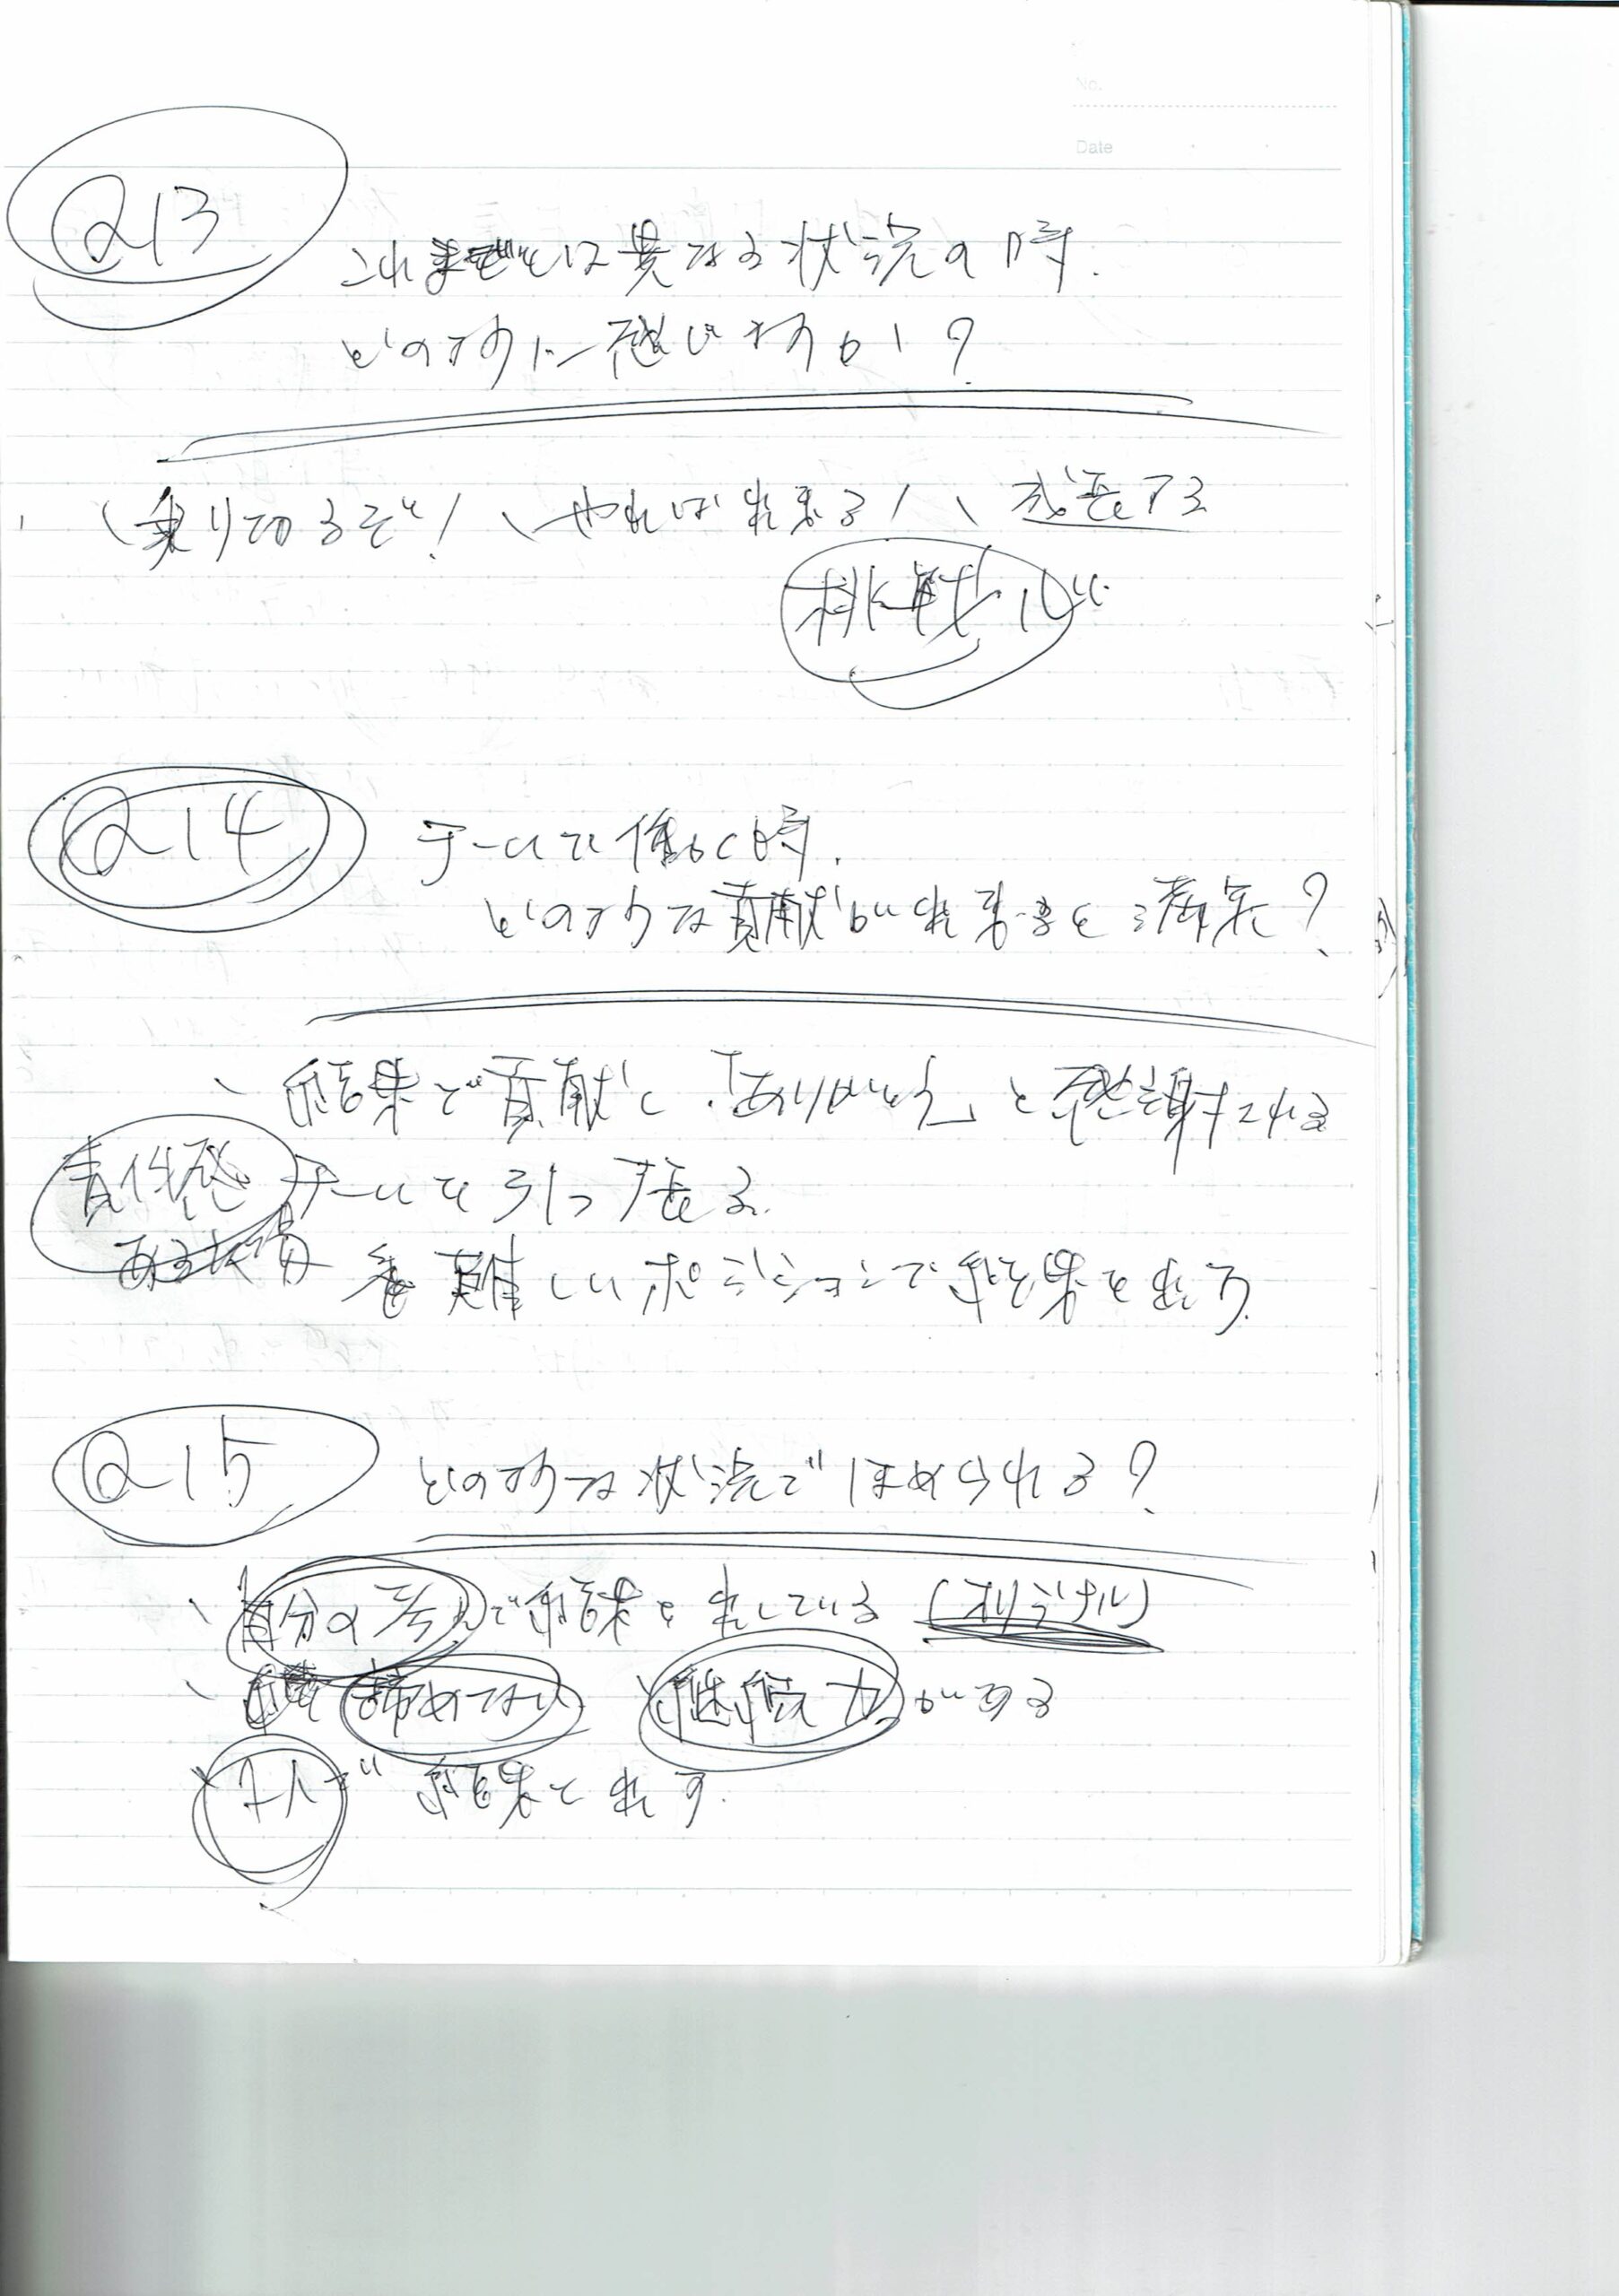 No.
Date
Q13
これまでとは異なる状況の時、
どのように感じますか？
、乗り切るぞ！、やれば出来る！、成長する
挑戦心
Q14
チームで働く時、
どのような貢献が出来ると満足？
、結果で貢献し、「ありがとう」と感謝される
責任感 チームを引っ張る。
ある立場 番難しいポジションで結果を出す。
Q15
どのような状況でほめられる？
、自分の考えで結果を出している（オリジナル）
、諦めない 継続力がある
、1人で結果を出す。